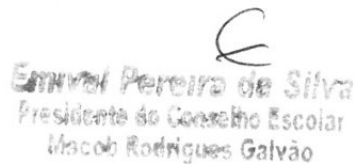 Erenivel Pereira da Silva
Presidente do Conselho Escolar
Macob Rodrigues Galvão